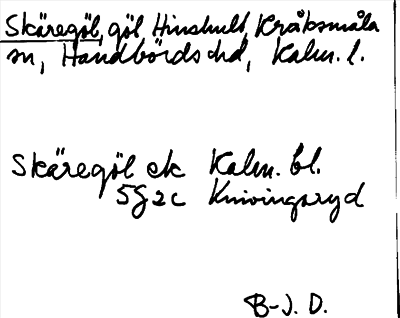 Skäregöl, göl Hinshult, Kråksmåla
sn, Handbörds hd, Kalm. l.
Skäregöl ek Kalm. bl.
5G 2c Knivingaryd
B-J. D.